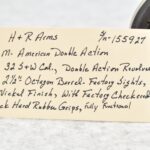 H + R Arms S/N-155927
M- American Double Action
32 S+W Cal., Double Action Revolver
2½" Octagon Barrel. Factory Sights,
Nickel Finish, With Factory Checkered
ck Hard Rubber Grips, Fully Functional